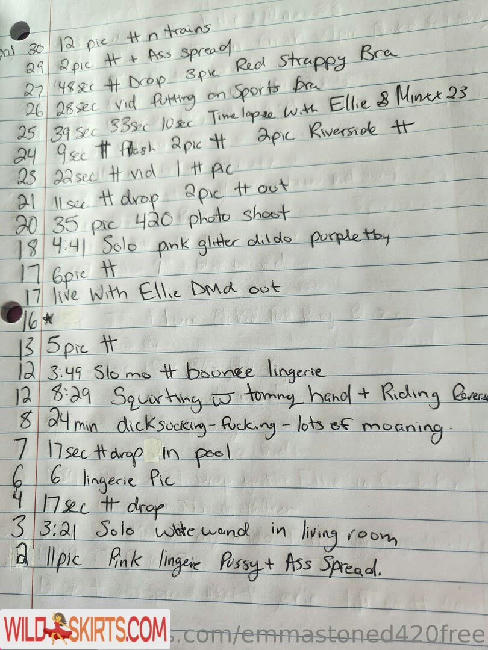 30 12 pic tt n trains
29 2pic tt + Ass spread
27 48sec tt Drop 3pic Red Strappy Bra
26 28sec vid Putting on Sports Bra
25 39 sec 33sec 10sec Time lapse with Ellie & Minxx 23
24 9sec tt flash 2pic tt 2pic Riverside tt
23 22sec tt vid 1 tt pic
21 11sec tt drop 2pic tt out
20 35 pic 420 photo shoot
18 4:41 Solo pink glitter dildo purple
17 6pic tt
17 live with Ellie DMd out
16*
13 5pic tt
12 3:49 Slo mo tt bounce lingerie
12 8:29 Squirting w tommy hand + Riding
8 24min dicksucking-fucking-lots of moaning.
7 17sec tt drop in pool
6 6 lingerie Pic
4 17sec tt drop
3 3:21 Solo wand in living room
2 11pic Pink lingerie Pussy + Ass Spread.
WILDSKIRTS.COM
s.com/emmastoned420free